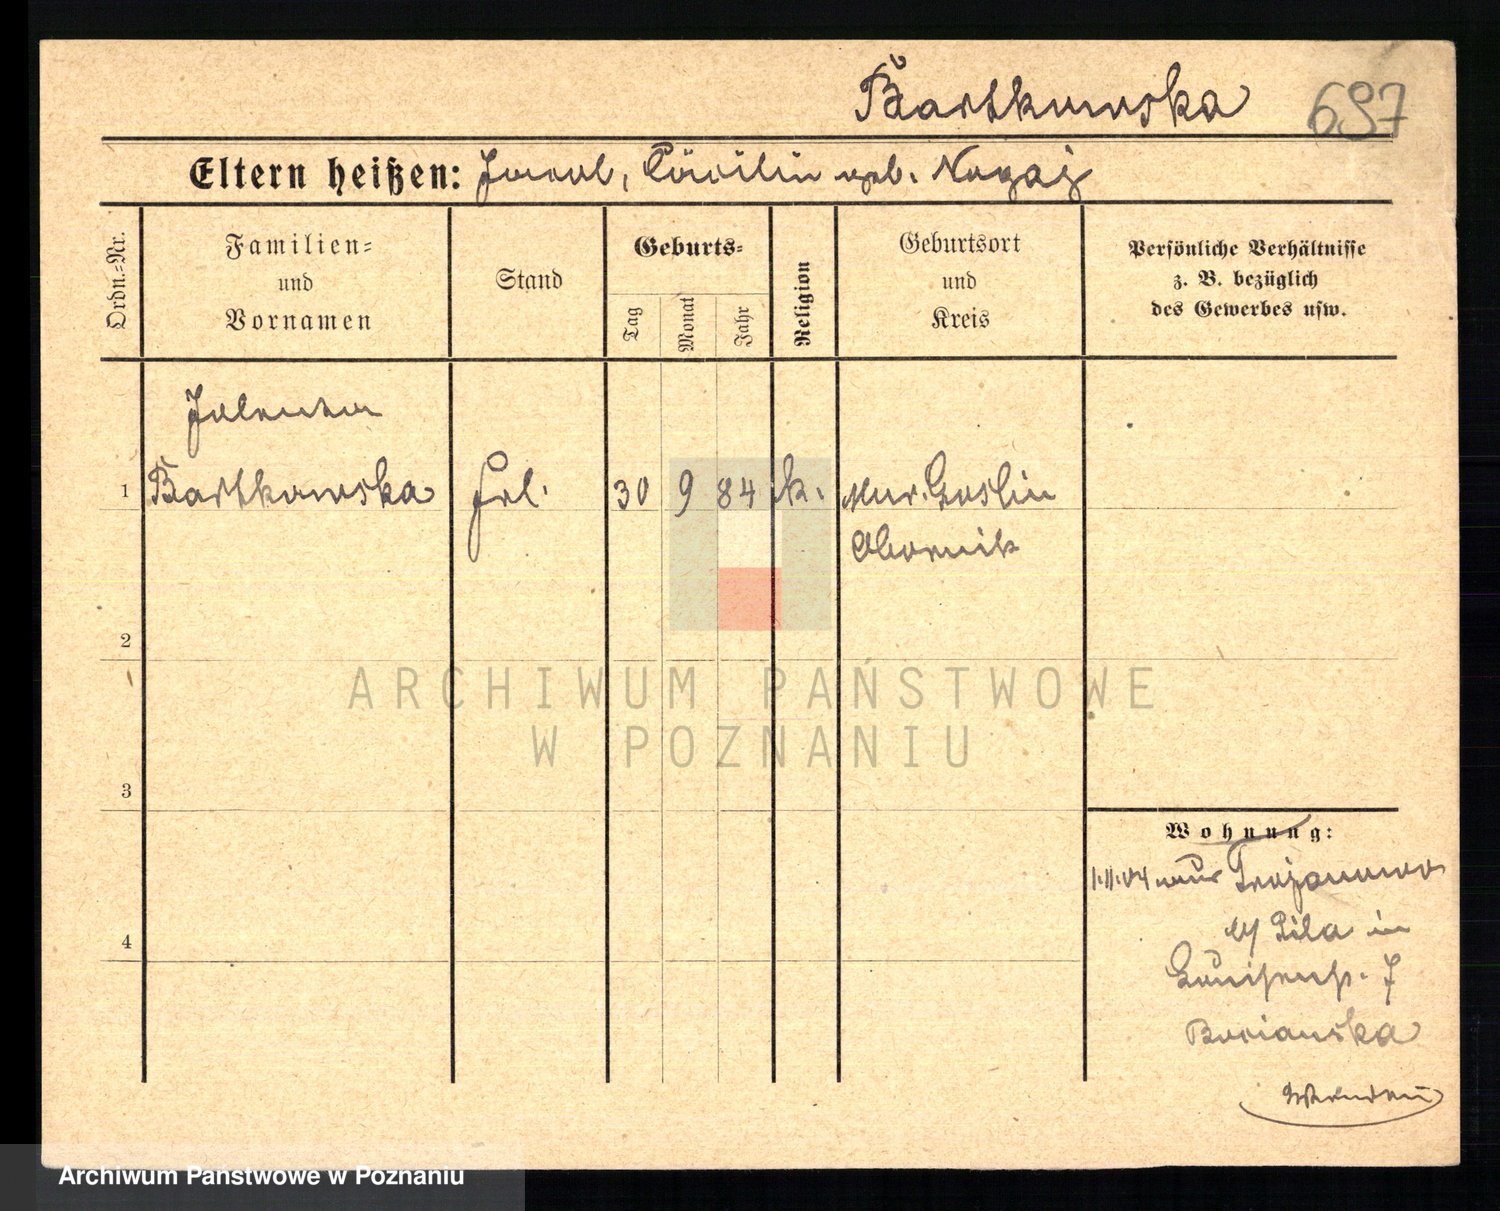 Bartkowska 697
Eltern heißen: Jacob, Cäcilie geb. Nogaj
Ordn.=Nr.
Familien=
und
Vornamen
Stand
Geburts=
Tag
Monat
Jahr
Religion
Geburtsort
und
Kreis
Persönliche Verhältnisse
z. B. bezüglich
des Gewerbes usw.
1 Bartkowska Frl. 30 9 84 k. Mur. Goslin
Obornik
2
3
4
Wohnung:
1.11.04 aus Trojanowo
Pila in
7
Bocianska
ARCHIWUM PAŃSTWOWE
W POZNANIU
Archiwum Państwowe w Poznaniu